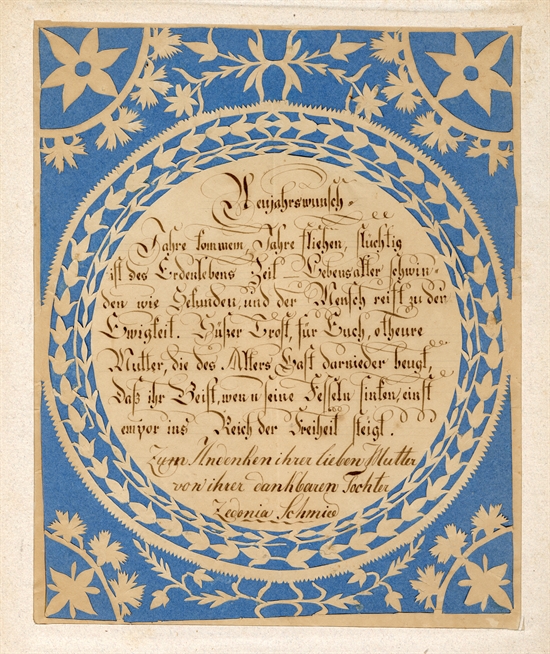 Neujahrswunsch.
Jahre kommem, Jahre fliehen, flüchtig
ist des Erdenlebens Zeit Lebensalter schwin-
den wie Sekunden, und der Mensch reist zu der
Ewigkeit. Süßer Trost, für Euch, o theure
Mutter, die des Alters Last darnieder beugt,
Daß ihr Geist, wenn seine Fesseln sinken, einst
empor ins Reich der Freiheit steigt.
Zum Andenken ihrer lieben Mutter
von ihrer dankbaren Tochter
Zedonia Schmied